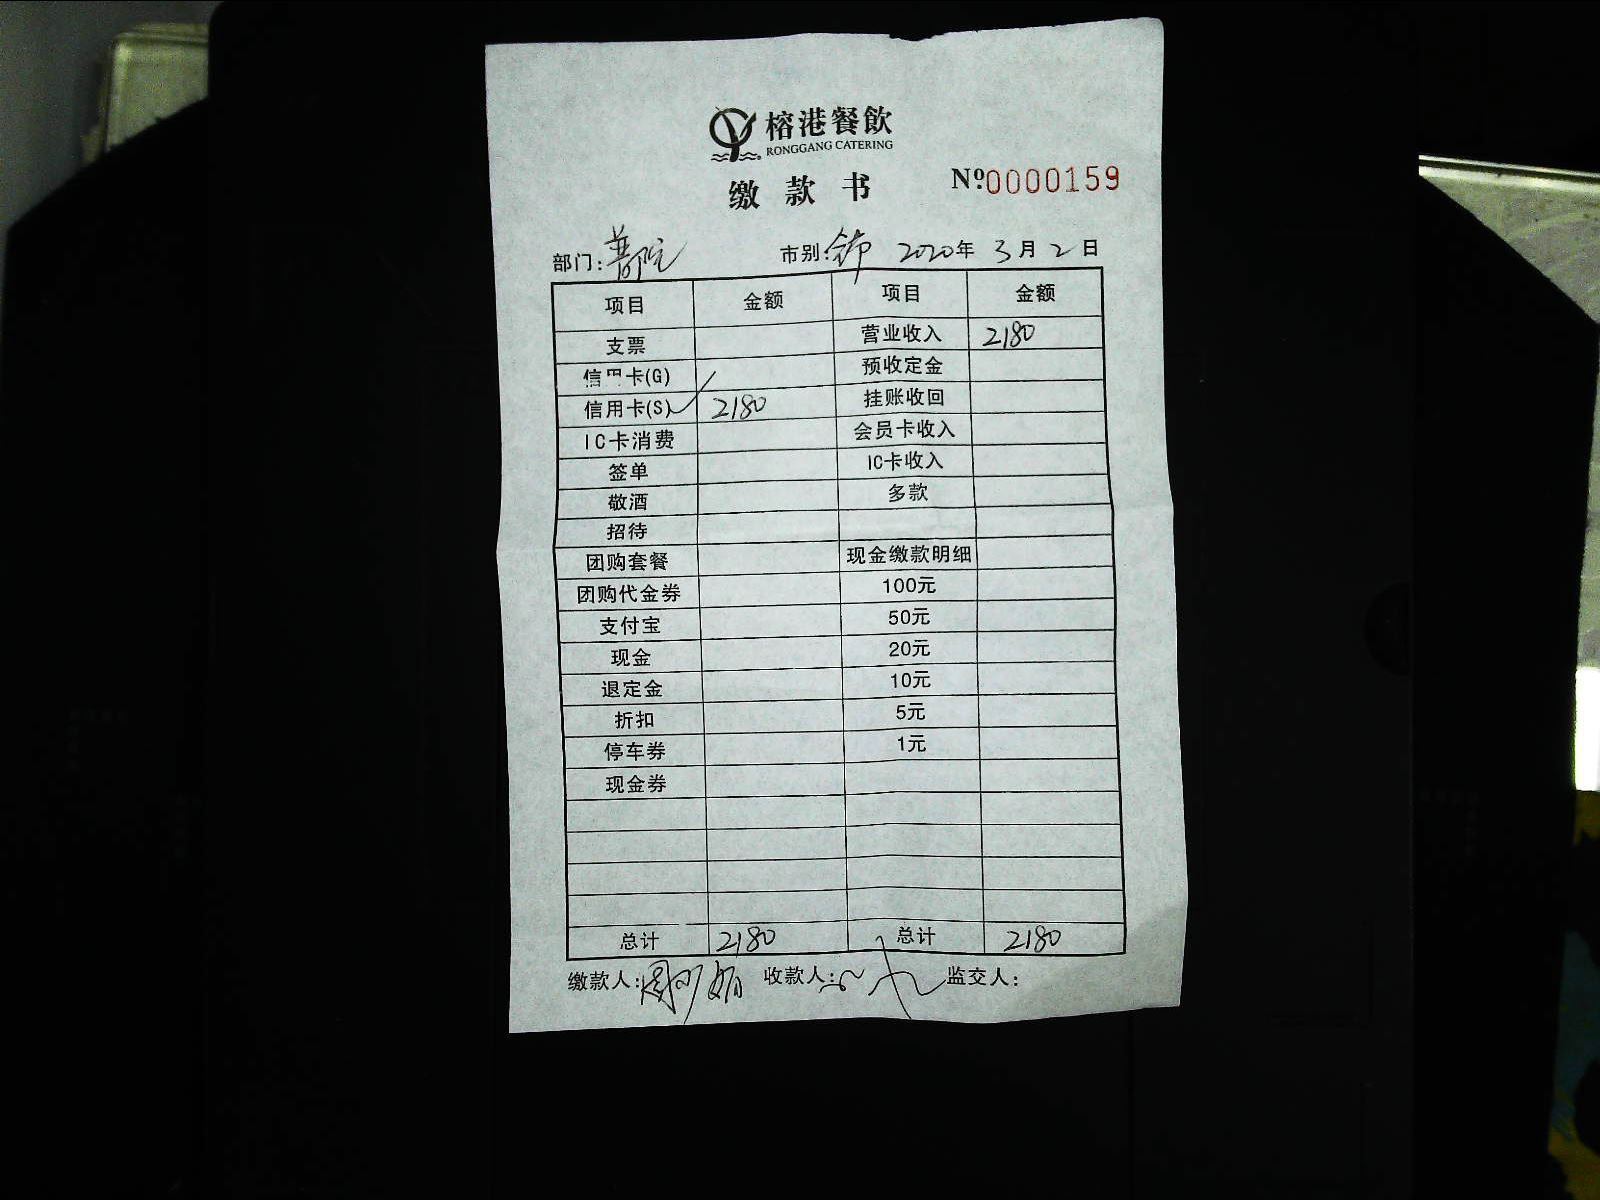 榕港餐飲
RONGGANG CATERING
缴款书 №0000159
部门: 市别: 2020年3月2日
项目 金额 项目 金额
支票 营业收入 2180
信用卡(G) 预收定金
信用卡(S) 2180 挂账收回
IC卡消费 会员卡收入
签单 IC卡收入
敬酒 多款
招待
团购套餐 现金缴款明细
团购代金券 100元
支付宝 50元
现金 20元
退定金 10元
折扣 5元
停车券 1元
现金券
总计 2180 总计 2180
缴款人: 收款人: 监交人: